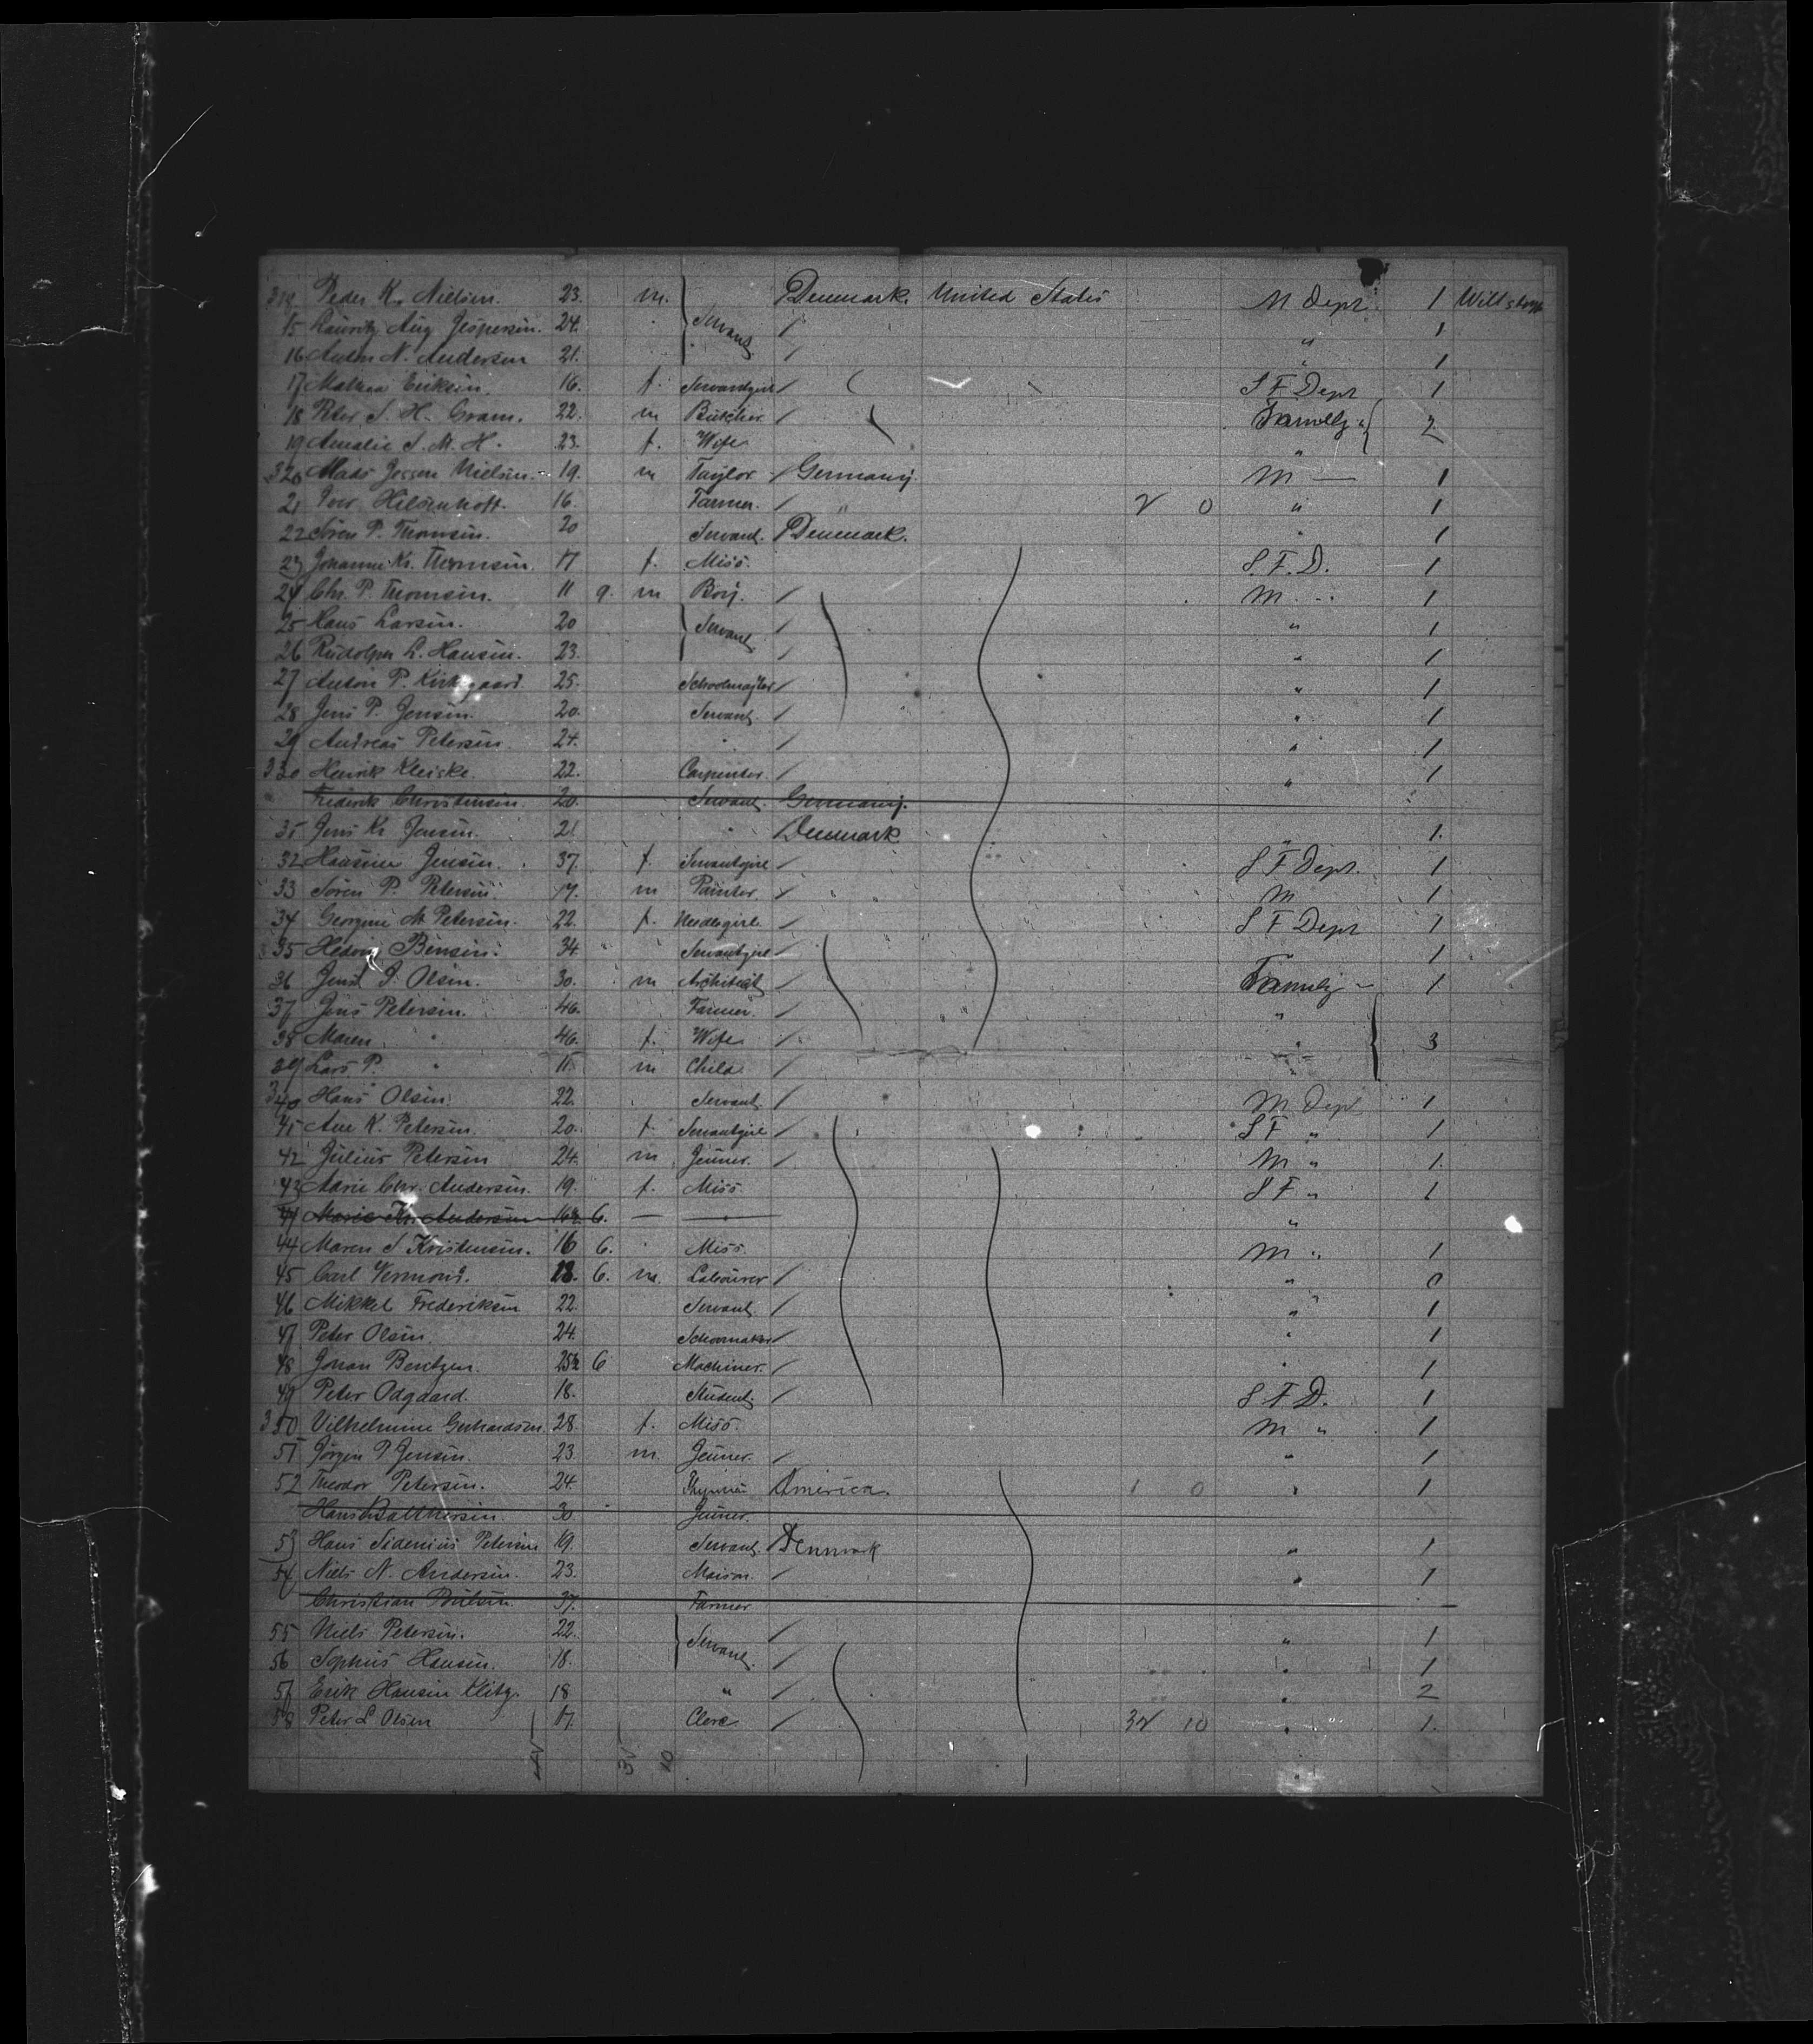 314 Peder K. Nielsen. 23. m. Denmark. United States M Dept. 1
15 Lauritz Aug Jespersen. 24. Servant / " 1
16 Anton N. Andersen 21. / " 1
17 Mathea Eriksen. 16. f. Servantgirl / S F Dept 1
18 Peter S. H. Gram. 22. m Butcher / Familly " 2
19 Amalie S. M. H. 23. f. Wife "
320 Mads Jessen Nielsen. 19. m Taylor / Germany. M — 1
21 Iver 16. Farmer. / " 2 0 " 1
22 Sören P. Thomsen. 20 Servant. Denmark. " 1
23 Johanne Kr. Thomsen. 17 f. Miss. S. F. D. 1
24 Chr. P. Thomsen. 11 9. m Boy. / M " 1
25 Hans Larsen. 20 Servant / " 1
26 Rudolph L. Hansen. 23. / " 1
27 Anton P. Kirkegaard. 25. / " 1
28 Jens P. Jensen. 20. Servant. / " 1
29 Andreas Petersen. 24. " / " 1
330 Henrik Kleiske. 22. Carpenter. / " 1
Frederik Christensen. 20. Servant. Germany.
31 Jens Kr Jensen. 21 " Denmark " 1.
32 Hansine Jensen. 37. f. Servantgirl / S F Dept. 1
33 Sören P. Petersen. 17. m Painter. / M 1
34 Georgine M. Petersen. 22. f. Needlegirl. / S F Dept 1
335 Hedvig Bensen. 34 Servantgirl / " 1
36 Jens J. Olsen. 30. m Architect / Family " 1
37 Jens Petersen. 46. Farmer. / "
38 Maren " 46. f. Wife / " 3
39 Lars P. " 11. m Child / "
340 Hans Olsen. 22. Servant / M Dept 1
41 Ane K. Petersen. 20. f. Servantgirl / S F " 1
42 Julius Petersen 24. m Joiner. / M " 1.
43 Marie Chr. Andersen. 19. f. Miss. S F " 1
44 Marie Kr. Andersen 16½ 6. — — "
44 Maren S Kristensen. 16 6. " Miss. M " 1
45 Carl Vermond. 18. 6. m. Labourer / "
46 Mikkel Frederiksen 22. Servant. / " 1
47 Peter Olsen. 24. Schoomaker / " 1
48 Johan Bentzen. 25½ 6 Machiner. / " 1
49 Peter Odgaard. 18. Student. / S. F. D. 1
350 Vilhelmine Gerhardsen. 28. f. Miss. M " 1
51 Jörgen P Jensen. 23 m. Joiner. / " 1
52 Theodor Petersen. 24. America. 1 0 " 1
Hans Balthersen. 30. Joiner.
53 Hans Sidenius Petersen 19. Servant. Denmark " 1
54 Niels N. Andersen. 23. Mason. / " 1
Christian 37. Farmer
55 Niels Petersen. 22. Servant. / " 1
56 Sophus Hansen. 18. / " 1
57 Erik Hansen Klitg. 18 " / " 2
58 Peter L Olsen 17. Clerc / 32 10 " 1.
10